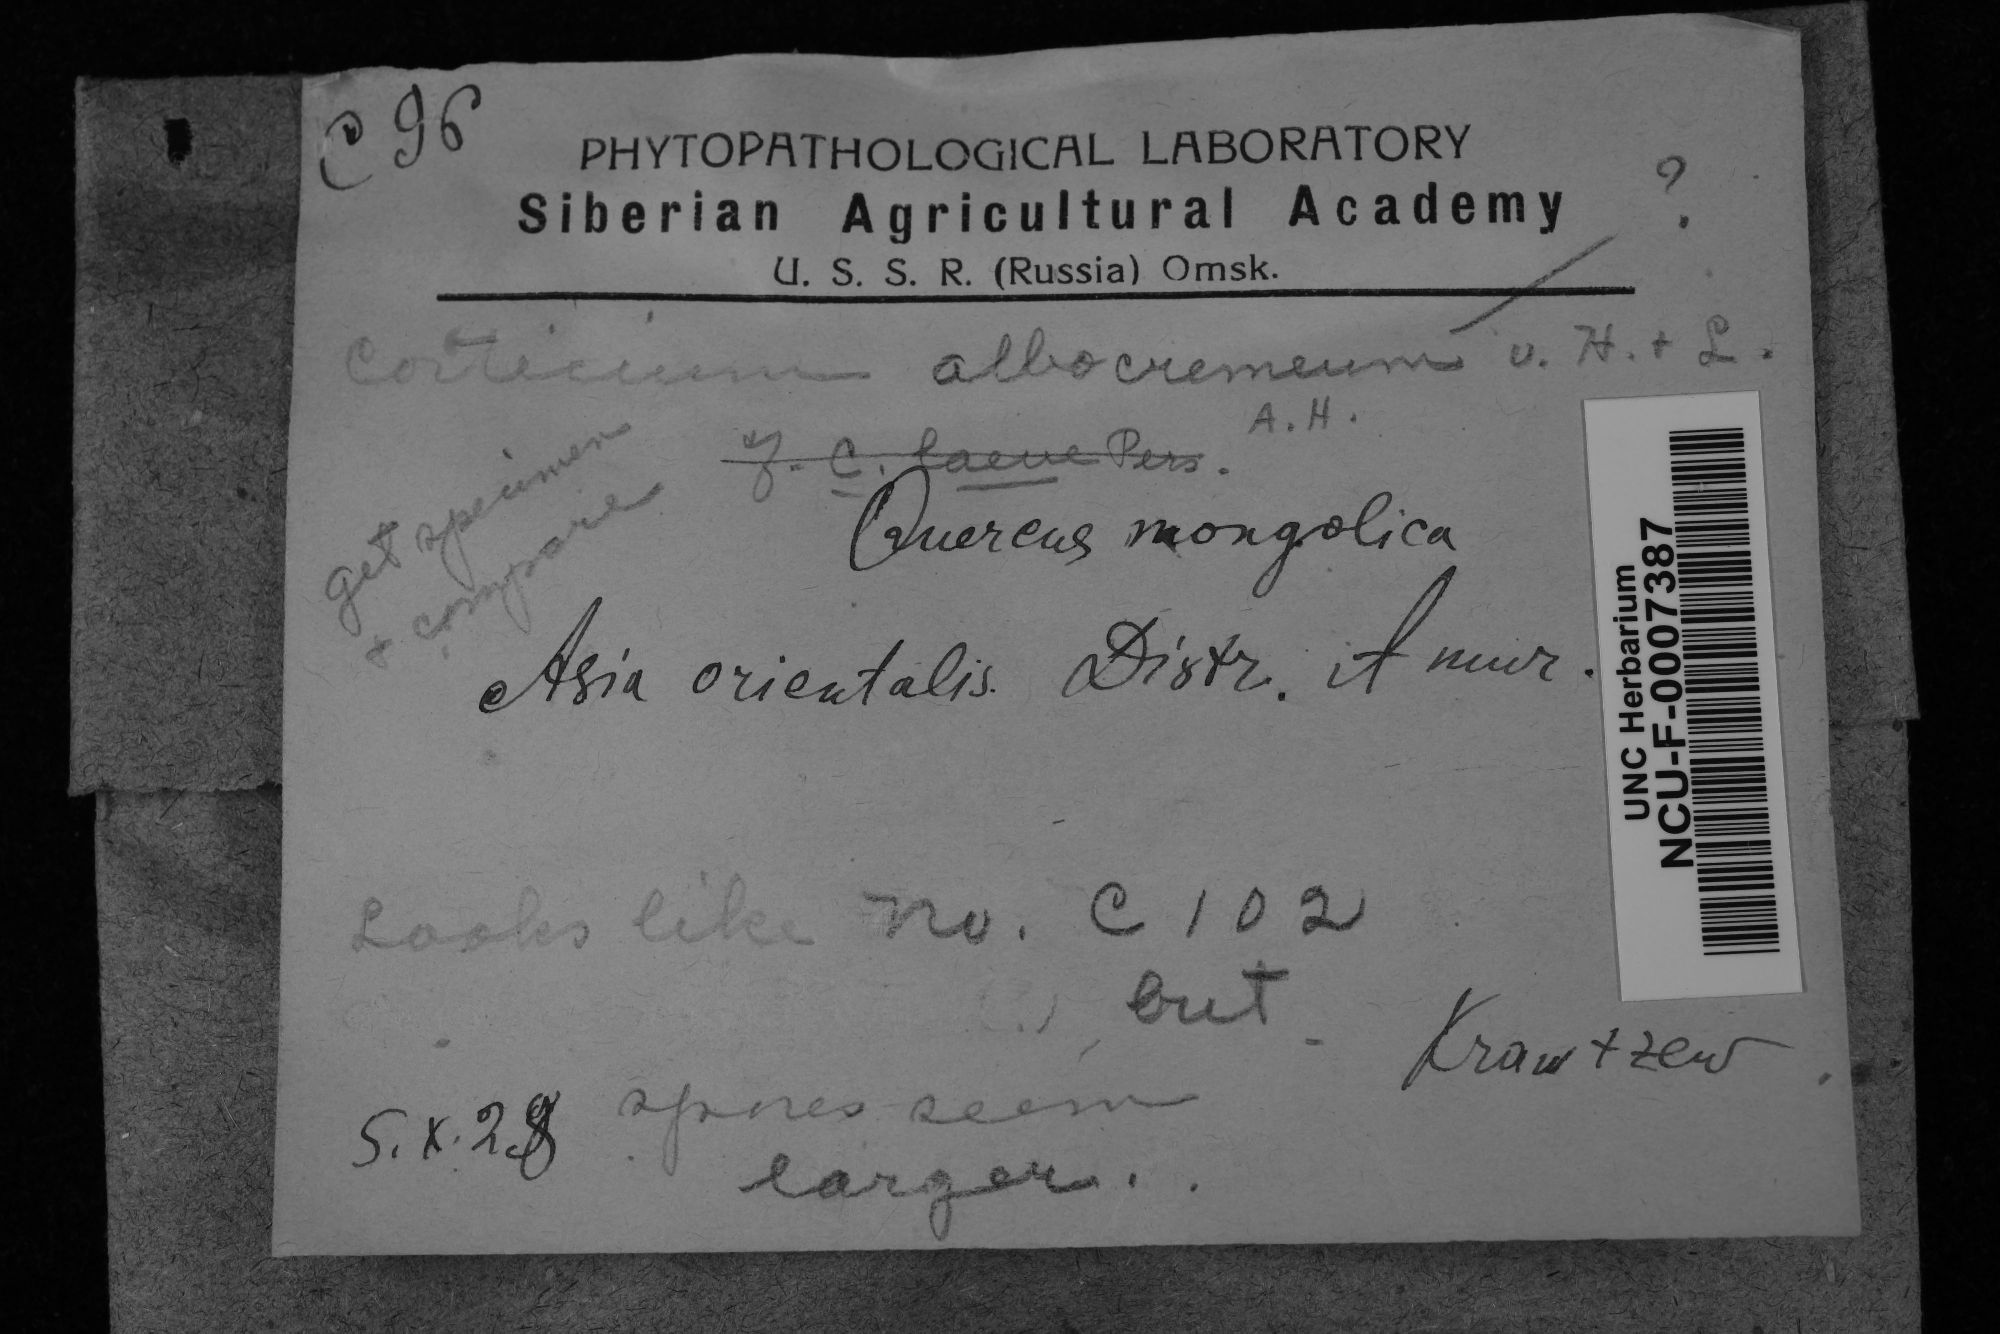 C 96
PHYTOPATHOLOGICAL LABORATORY
Siberian Agricultural Academy
U. S. S. R. (Russia) Omsk.
?
Corticium albocremeum v. H. + L.
A. H.
C. laeve Pers.
get specimen
+ compare
Quercus mongolica
Asia orientalis. Distr. Amur.
UNC Herbarium
NCU-F-0007387
Looks like no. C 102
but
Krawtzew
spores seem
5. X. 28
larger.